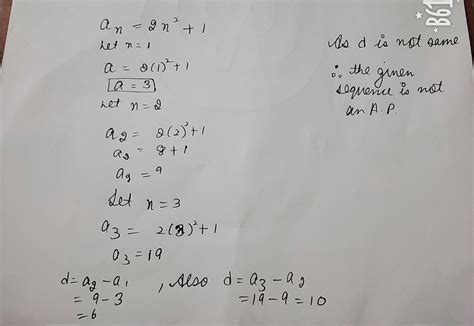 aₙ = 2n² + 1
Let n = 1
a = 2(1)² + 1
a = 3
Let n = 2
a₂ = 2(2)² + 1
a₂ = 8 + 1
a₂ = 9
Let n = 3
a₃ = 2(3)² + 1
a₃ = 19
d = a₂ - a₁ , Also d = a₃ - a₂
= 9 - 3 = 19 - 9 = 10
= 6
As d is not same
∴ the given
sequence is not
an A.P.